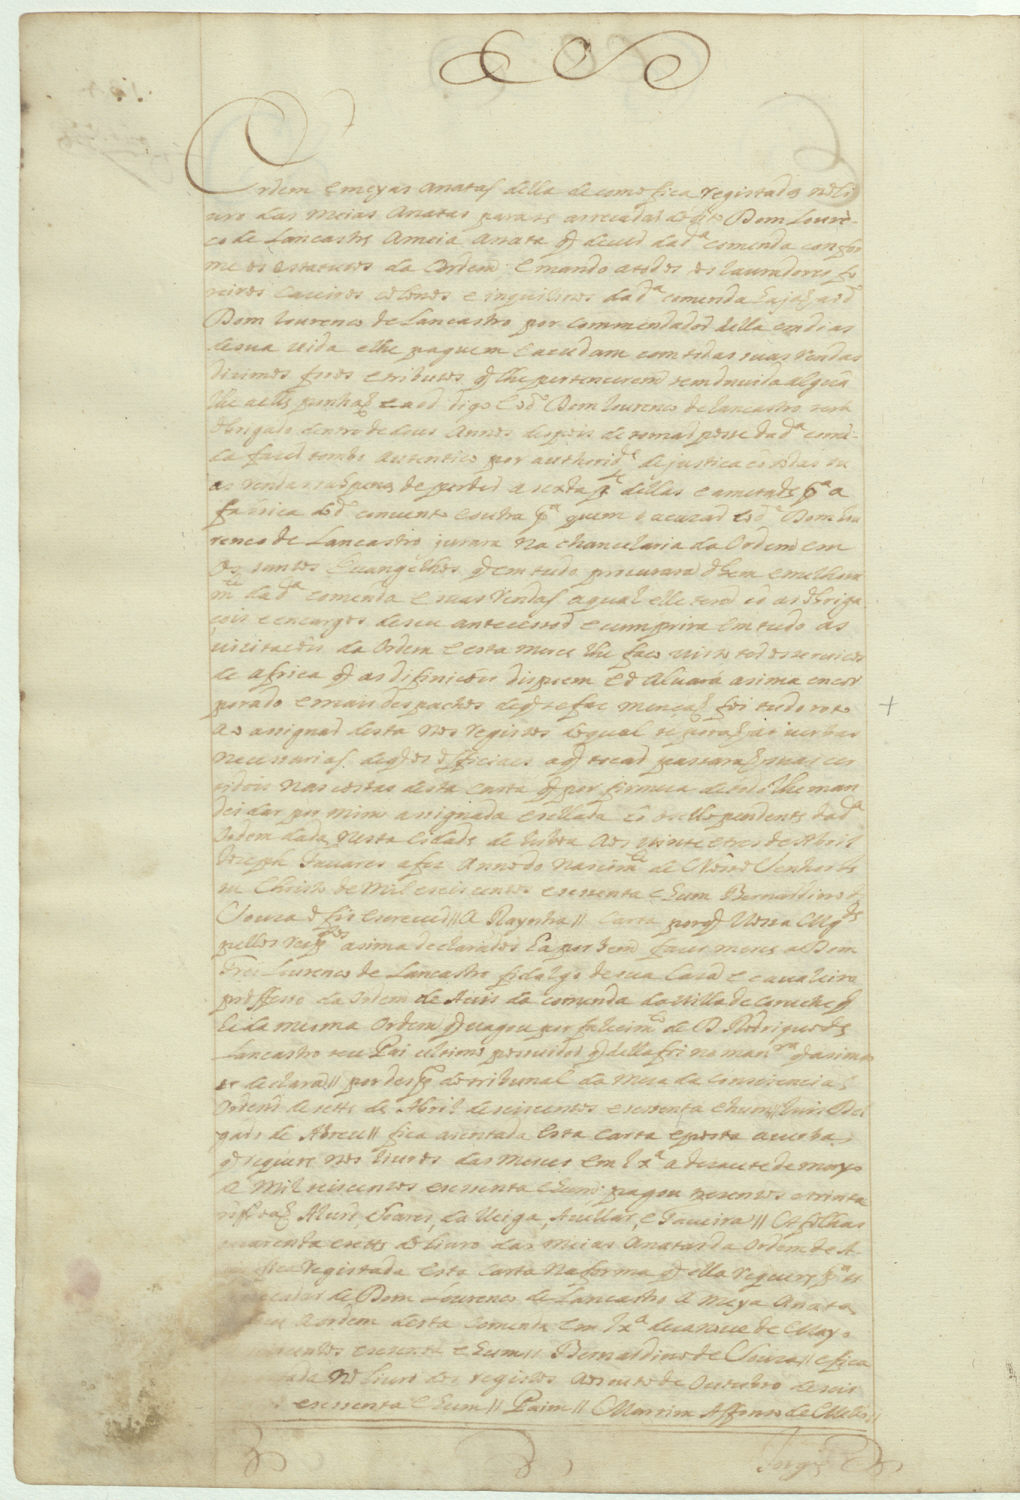 Ordem e meyas Anatas della de como fica registada no Li
uro das Meias Anatas para se arrecadar do dto Dom Louren-
co de Lancastro Ameia Anata q̃ deue da dª comenda confor
me os estatutos da Ordem e mando a todos os Lauradores fo
reiros Caseiros colonos e inquilinos da dª comenda hajaõ ao dº
Dom Lourenco de Lancastro por commendador della em dias
de sua uida e lhe paguem e acudam com todas suas Rendas
dizimos foros e tributos q̃ lhe pertencerem sem duuida algũa
lhe a ello ponhaõ e a od digo e o dº Dom Lourenco de Lancastro sera
obrigado dentro de dous Annos depois de tomar posse da dª comẽ-
da fazer tombo autentico por authoridᵉ de justica cõ todas su
as Rendas so pena de perder a sexta pᵗᵉ dellas e ametade pª a
fabrica do dº conuento e outra pª quem o acuzar e o dº Dom Lou
renco de Lancastro jurara Na chancelaria da Ordem em
Os santos Euangelhos q̃ em tudo procurara o bem e melhora
mᵗᵒ da dª comenda e suas Rendas a qual elle tera cõ as obriga
cois e encargos de seu antecessor e cumprira em tudo as
uizitacois da Ordem e esta merce lhe faco uisto ter os seruicos
de Africa q̃ as difinicois dispoem e o Aluará asima encor
porado e mais despachos de q̃ se faz mencaõ foi tudo roto
ao assignar desta Nos registos do qual se poraõ as uerbas
Necessarias de q̃ os officiaes a q̃ tocar passaraõ suas cer
tidois Nas costas desta Carta q̃ por firmeza de todo lhe man
dei dar por mim assignada e sellada cõ o sello pendente da dª
Ordem dada Nesta Cidade de Lisboa Aos uinte e tres de Abril
Joseph Tauares a fez Anno do Nascimᵗᵒ de Nosso Senhor Je
su Christo de Mil e seiscentos e sessenta e hum Bernardino de
Souza o fis escreuer // A Raynha // Carta porq̃ Vossa Mgᵈᵉ
pellos respᵗᵒˢ asima declarados Ha por bem fazer merce a Dom
Frei Lourenco de Lancastro fidalgo de sua Caza e caualeiro
proffesso da Ordem de Auis da comenda da Villa de Coruche q̃
he da mesma Ordem q̃ uagou por falecimᵗᵒ de D. Rodrigo de
Lancastro seu Pai ultimo possuidor q̃ della foi na manʳª q̃ asima
se declara // por despº do tribunal da Mesa da Consciencia e
Ordens de sette de Abril de seiscentos e sessenta e hum // Luis Del
gado de Abreu // fica assentada esta carta e posta a uerba
q̃ requere nos liuros das Merces em Lxª a dezasete de mayo
de Mil seiscentos e sessenta e hum pagou trezentos e trinta
Alues Soares da Ueiga, Auellar, e Taueira // As folhas
quarenta e sette do liuro das Meias Anatas da Ordem de A
fica registada esta Carta Na forma q̃ ella requere pª se
arrecadar de Dom Lourenco de Lancastro A Meya Anata
q̃ deue A ordem desta Comenda em Lxª dezanoue de Mayo
seiscentos e sessenta e hum // Bernardino de Souza // e fica
No liuro dos registos Aos outo de Outubro de seis
e sessenta e hum // Paim // Martim Affonso de Mello //